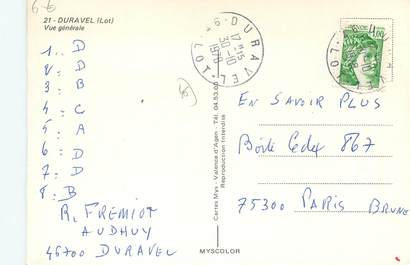 6 €
21 - DURAVEL (Lot)
Vue générale
1.. D
2.. D
3 : B
4 : C
5 : A
6 : D
7 : D
8 : B
R. FREMIOT
AUDHUY
46700 DURAVEL
46 · DURAVEL
17 H 15
30 - 10
1978
LOT
Cartes Mys - Valence d'Agen - Tél. 04.53.00
Reproduction Interdite
MYSCOLOR
EN SAVOIR PLUS
Boîte Cedex 867
75300 PARIS BRUNE